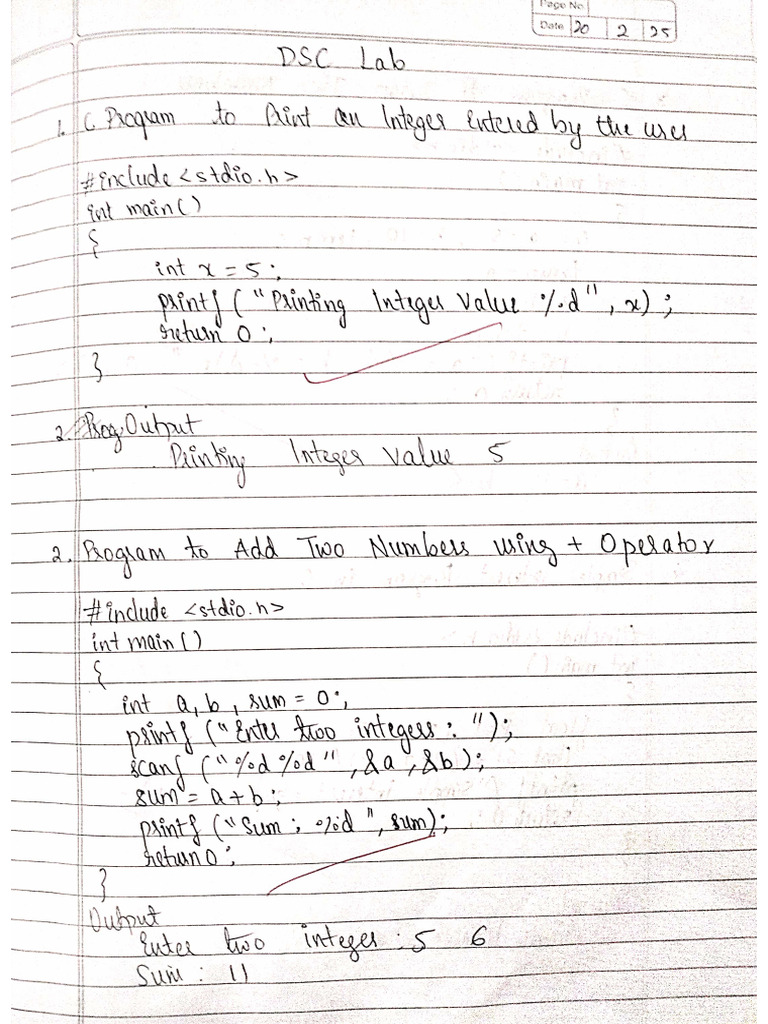 Page No
Date 20 2 25
DSC Lab
1. C Program to Print an Integer Entered by the user
#include <stdio.h>
int main()
{
int x = 5;
printf ("Printing Integer Value %d", x);
return 0;
}
2. Prog Output
Printing Integer value 5
2. Program to Add Two Numbers using + Operator
#include <stdio.h>
int main()
{
int a, b, sum = 0;
printf ("Enter two integers : ");
scanf ("%d %d", &a, &b);
sum = a + b;
printf ("Sum : %d", sum);
return 0;
}
Output
Enter two integer : 5 6
Sum : 11